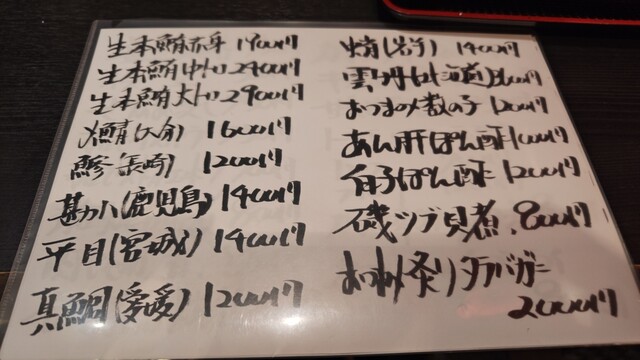 生本鮪赤身 1900円
生本鮪中トロ 2400円
生本鮪大トロ 2900円
〆鯖(大分) 1600円
鯵(長崎) 1200円
勘八(鹿児島) 1400円
平目(宮城) 1400円
真鯛(愛媛) 1200円
蛸(岩手) 1400円
雲丹(北海道)
おつまみ数の子 1200円
あん肝ぽん酢 1000円
白子ぽん酢 1200円
磯ツブ貝煮 800円
おつまみ炙りタラバガニ
2000円